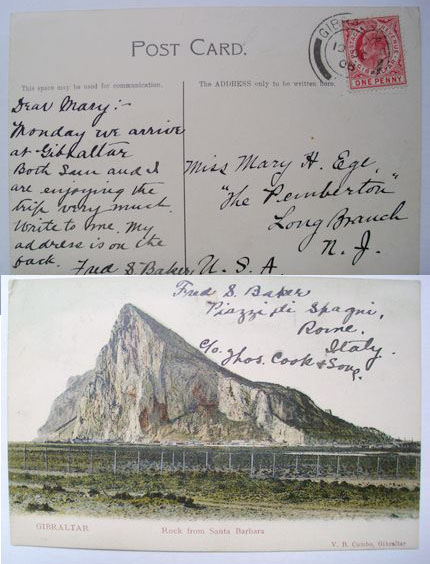 POST CARD.
GIBR
08
POSTAGE REVENUE
ONE PENNY
This space may be used for communication.
The ADDRESS only to be written here.
Dear Mary:-
Monday we arrive
at Gibraltar
Both Sun and I
are enjoying the
trip very much.
Write to me. My
address is on the
back.
Fred S. Baker
Miss Mary H. Ege,
"The Pemberton"
Long Branch
N. J.
U. S. A.
Fred S. Baker
Piazzi di Spagni,
Rome,
Italy.
c/o. Thos. Cook & Sons.
GIBRALTAR
Rock from Santa Barbara
V. B. Cumbo, Gibraltar